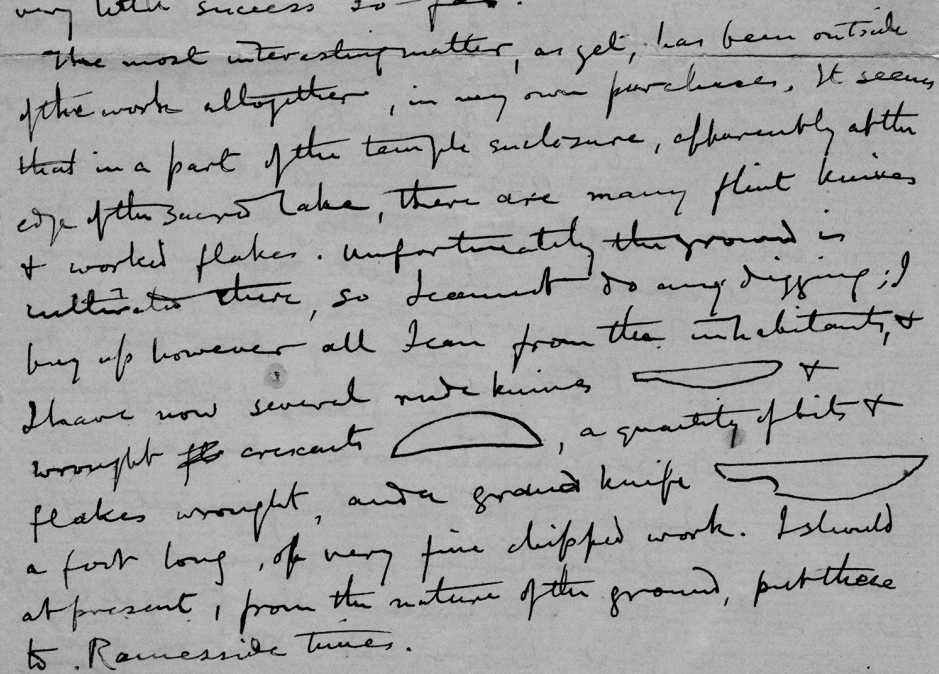 very little success so far.
The most interesting matter, as yet, has been outside
of the work altogether, in my own purchases. It seems
that in a part of the temple enclosure, apparently at the
edge of the sacred lake, there are many flint knives
& worked flakes. Unfortunately the ground is
cultivated there, so I cannot do any digging; I
buy up however all I can from the inhabitants, &
I have now several rude knives &
wrought crescents, a quantity of bits &
flakes wrought, and a ground knife
a foot long, of very fine chipped work. I should
at present, from the nature of the ground, put these
to Ramesside times.